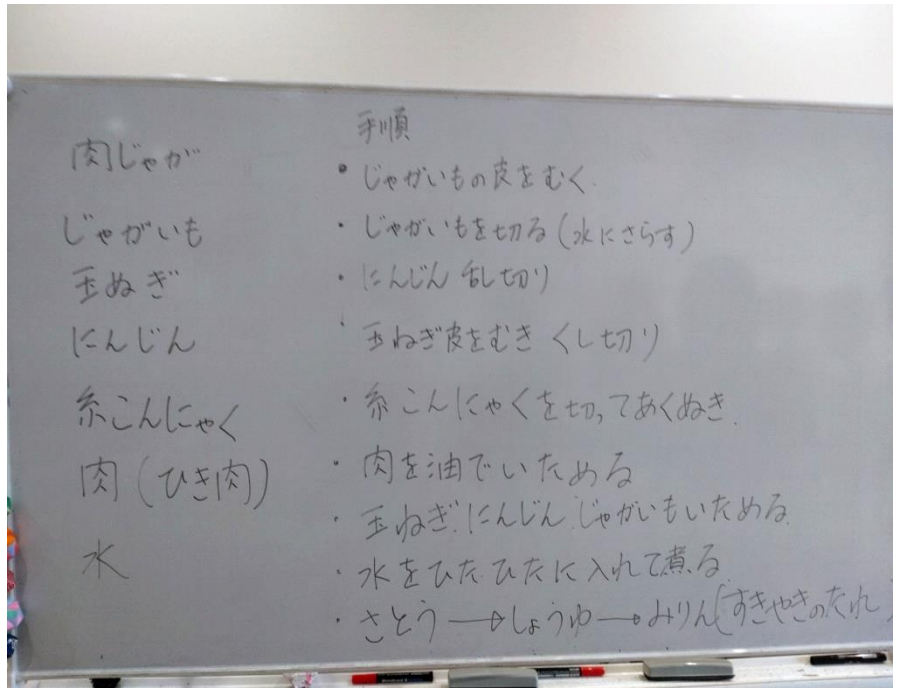 肉じゃが
じゃがいも
玉ぬぎ
にんじん
糸こんにゃく
肉(ひき肉)
水
手順
・じゃがいもの皮をむく
・じゃがいもを切る(水にさらす)
・にんじん 乱切り
・玉ねぎ皮をむき くし切り
・糸こんにゃくを切ってあくぬき
・肉を油でいためる
・玉ねぎ.にんじん.じゃがいもいためる
・水をひたひたに入れて煮る
・さとう→しょうゆ→みりん(すきやきのたれ)